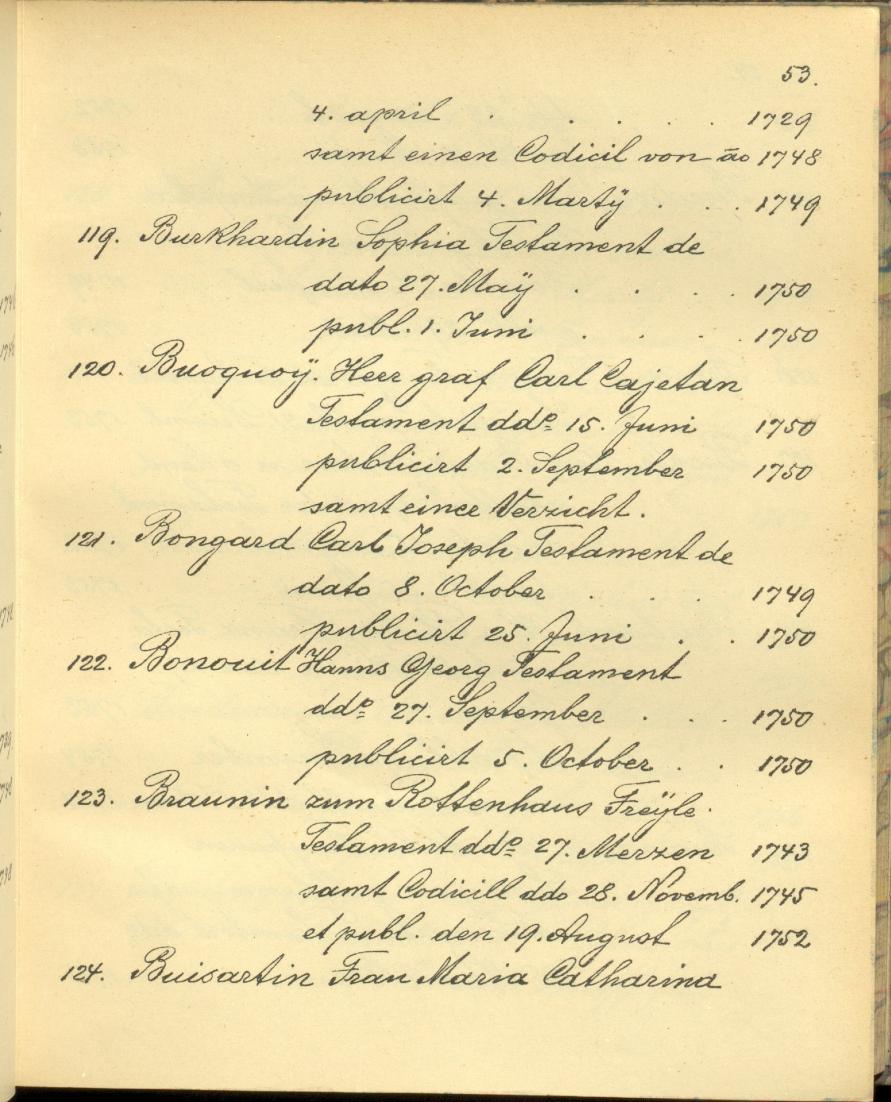 53.
4. april . . . . . 1729
samt einen Codicil von āo 1748
publicirt 4. Martÿ . . . 1749
119. Burkhardin Sophia Testament de
dato 27. Maÿ . . . . 1750
publ. 1. Juni . . . 1750
120. Buoquoÿ. Herr graf Carl Cajetan
Testament ddo 15. Juni 1750
publicirt 2. September 1750
samt einer Verzicht.
121. Bongard Carl Joseph Testament de
dato 8. October . . . 1749
publicirt 25. Juni . . 1750
122. Bonouit Hanns Georg Testament
ddo 27. September . . . 1750
publicirt 5. October . . 1750
123. Braunin zum Rottenhaus Freÿle.
Testament ddo 27. Merzen 1743
samt Codicill ddo 28. Novemb. 1745
et publ. den 19. August 1752
124. Buisartin Frau Maria Catharina